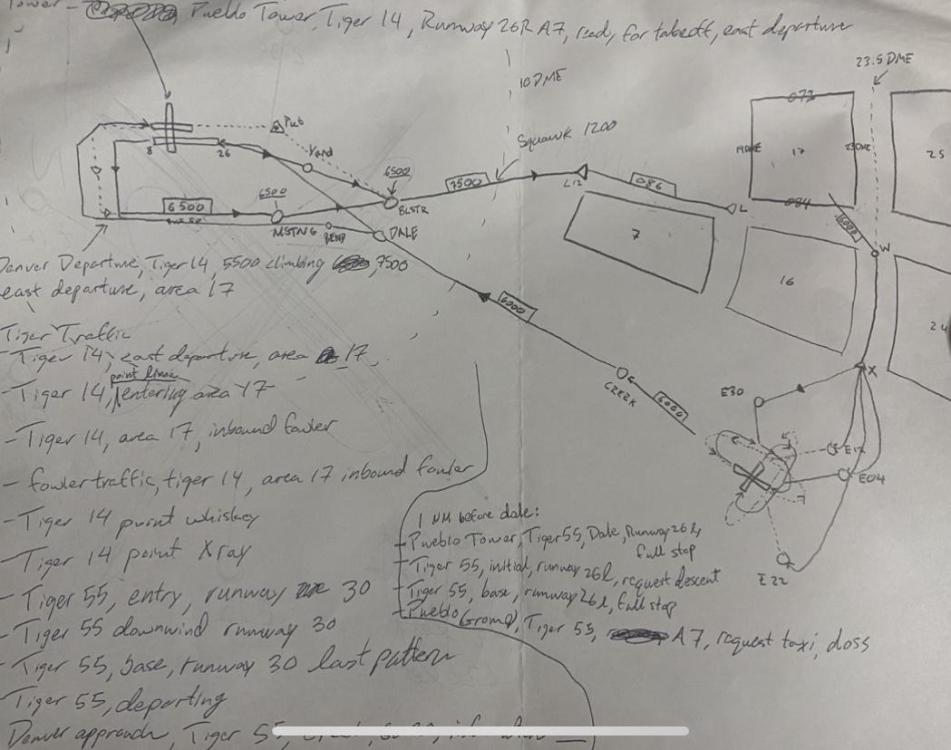 Tower - Pueblo Tower, Tiger 14, Runway 26R A7, ready for takeoff, east departure
23.5 DME
10 DME
Squawk 1200
073
17
25
Pub
Yard
8
26
6500
7500
L12
086
L
084
6000
W
6500
6500
BLSTR
MSTNG
DALE
7
16
24
Denver Departure, Tiger 14, 5500 climbing 7500
east departure, area 17
6000
Tiger Traffic
- Tiger 14, east departure, area 17,
point lima
- Tiger 14, entering area 17
X
E30
6000
- Tiger 14, area 17, inbound fowler
E04
- fowler traffic, tiger 14, area 17 inbound fowler
- Tiger 14 point whiskey
- Tiger 14 point Xray
E22
- Tiger 55, entry, runway 30
- Tiger 55 downwind runway 30
- Tiger 55, base, runway 30 last pattern
- Tiger 55, departing
Denver approach, Tiger 55,
1 NM before dale:
- Pueblo Tower, Tiger 55, Dale, Runway 26L,
full stop
- Tiger 55, initial, runway 26L, request descent
- Tiger 55, base, runway 26L, full stop
- Pueblo Ground, Tiger 55, A7, request taxi, doss